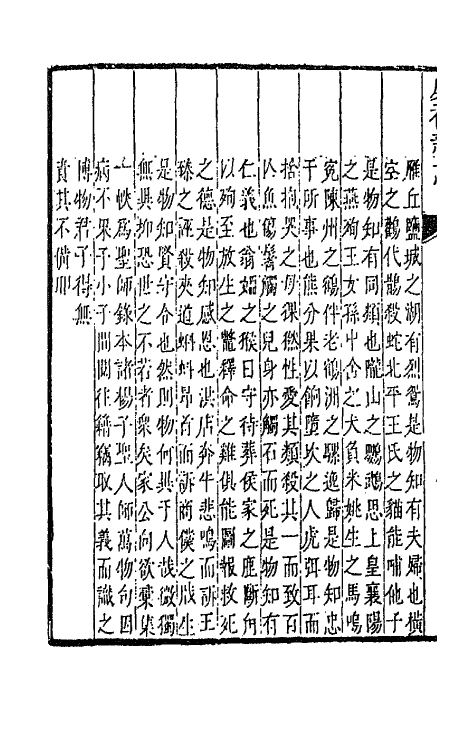 雁丘鹽城之湖有烈鴛是物知有夫婦也橫
空之鸛代鵲殺蛇北平王氏之貓能哺他子
是物知有同類也隴山之鸚鵡思上皇襄陽
之燕殉王女孫中舍之犬負米姚生之馬鳴
冤陳州之鷂伴老鶴洲之騾逸歸是物知忠
干所事也熊分果以餉墮坎之人虎弭耳而
捨損哭之母猓然性愛其類殺其一而致百
人魚傷鬐觸之兒身亦觸石而死是物知有
仁義也翁媼之猴日守待葬侯家之鹿斷角
以殉至放生之鱉釋命之雞俱能圖報救死
之德是物知感恩也洪店奔牛悲鳴而訴王
臻之誣殺夾道蝌蚪昂首而訴商僕之戕生
是物知賢守令也然則物何異于人哉微獨
無異抑恐世之不若者衆矣家公向欲彙集
一帙爲聖師錄本諸楊子聖人師萬物句因
病不果予小子間閱往籍竊取其義而識之
博物君子得無
責其不備卬